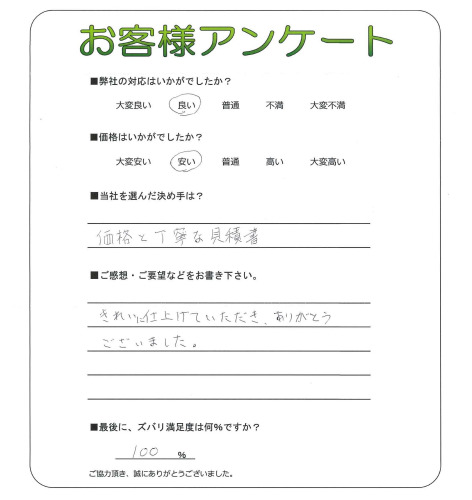 お客様アンケート
■弊社の対応はいかがでしたか？
大変良い 良い 普通 不満 大変不満
■価格はいかがでしたか？
大変安い 安い 普通 高い 大変高い
■当社を選んだ決め手は？
価格と丁寧な見積書
■ご感想・ご要望などをお書き下さい。
きれいに仕上げていただき、ありがとう
ございました。
■最後に、ズバリ満足度は何％ですか？
100 %
ご協力頂き、誠にありがとうございました。